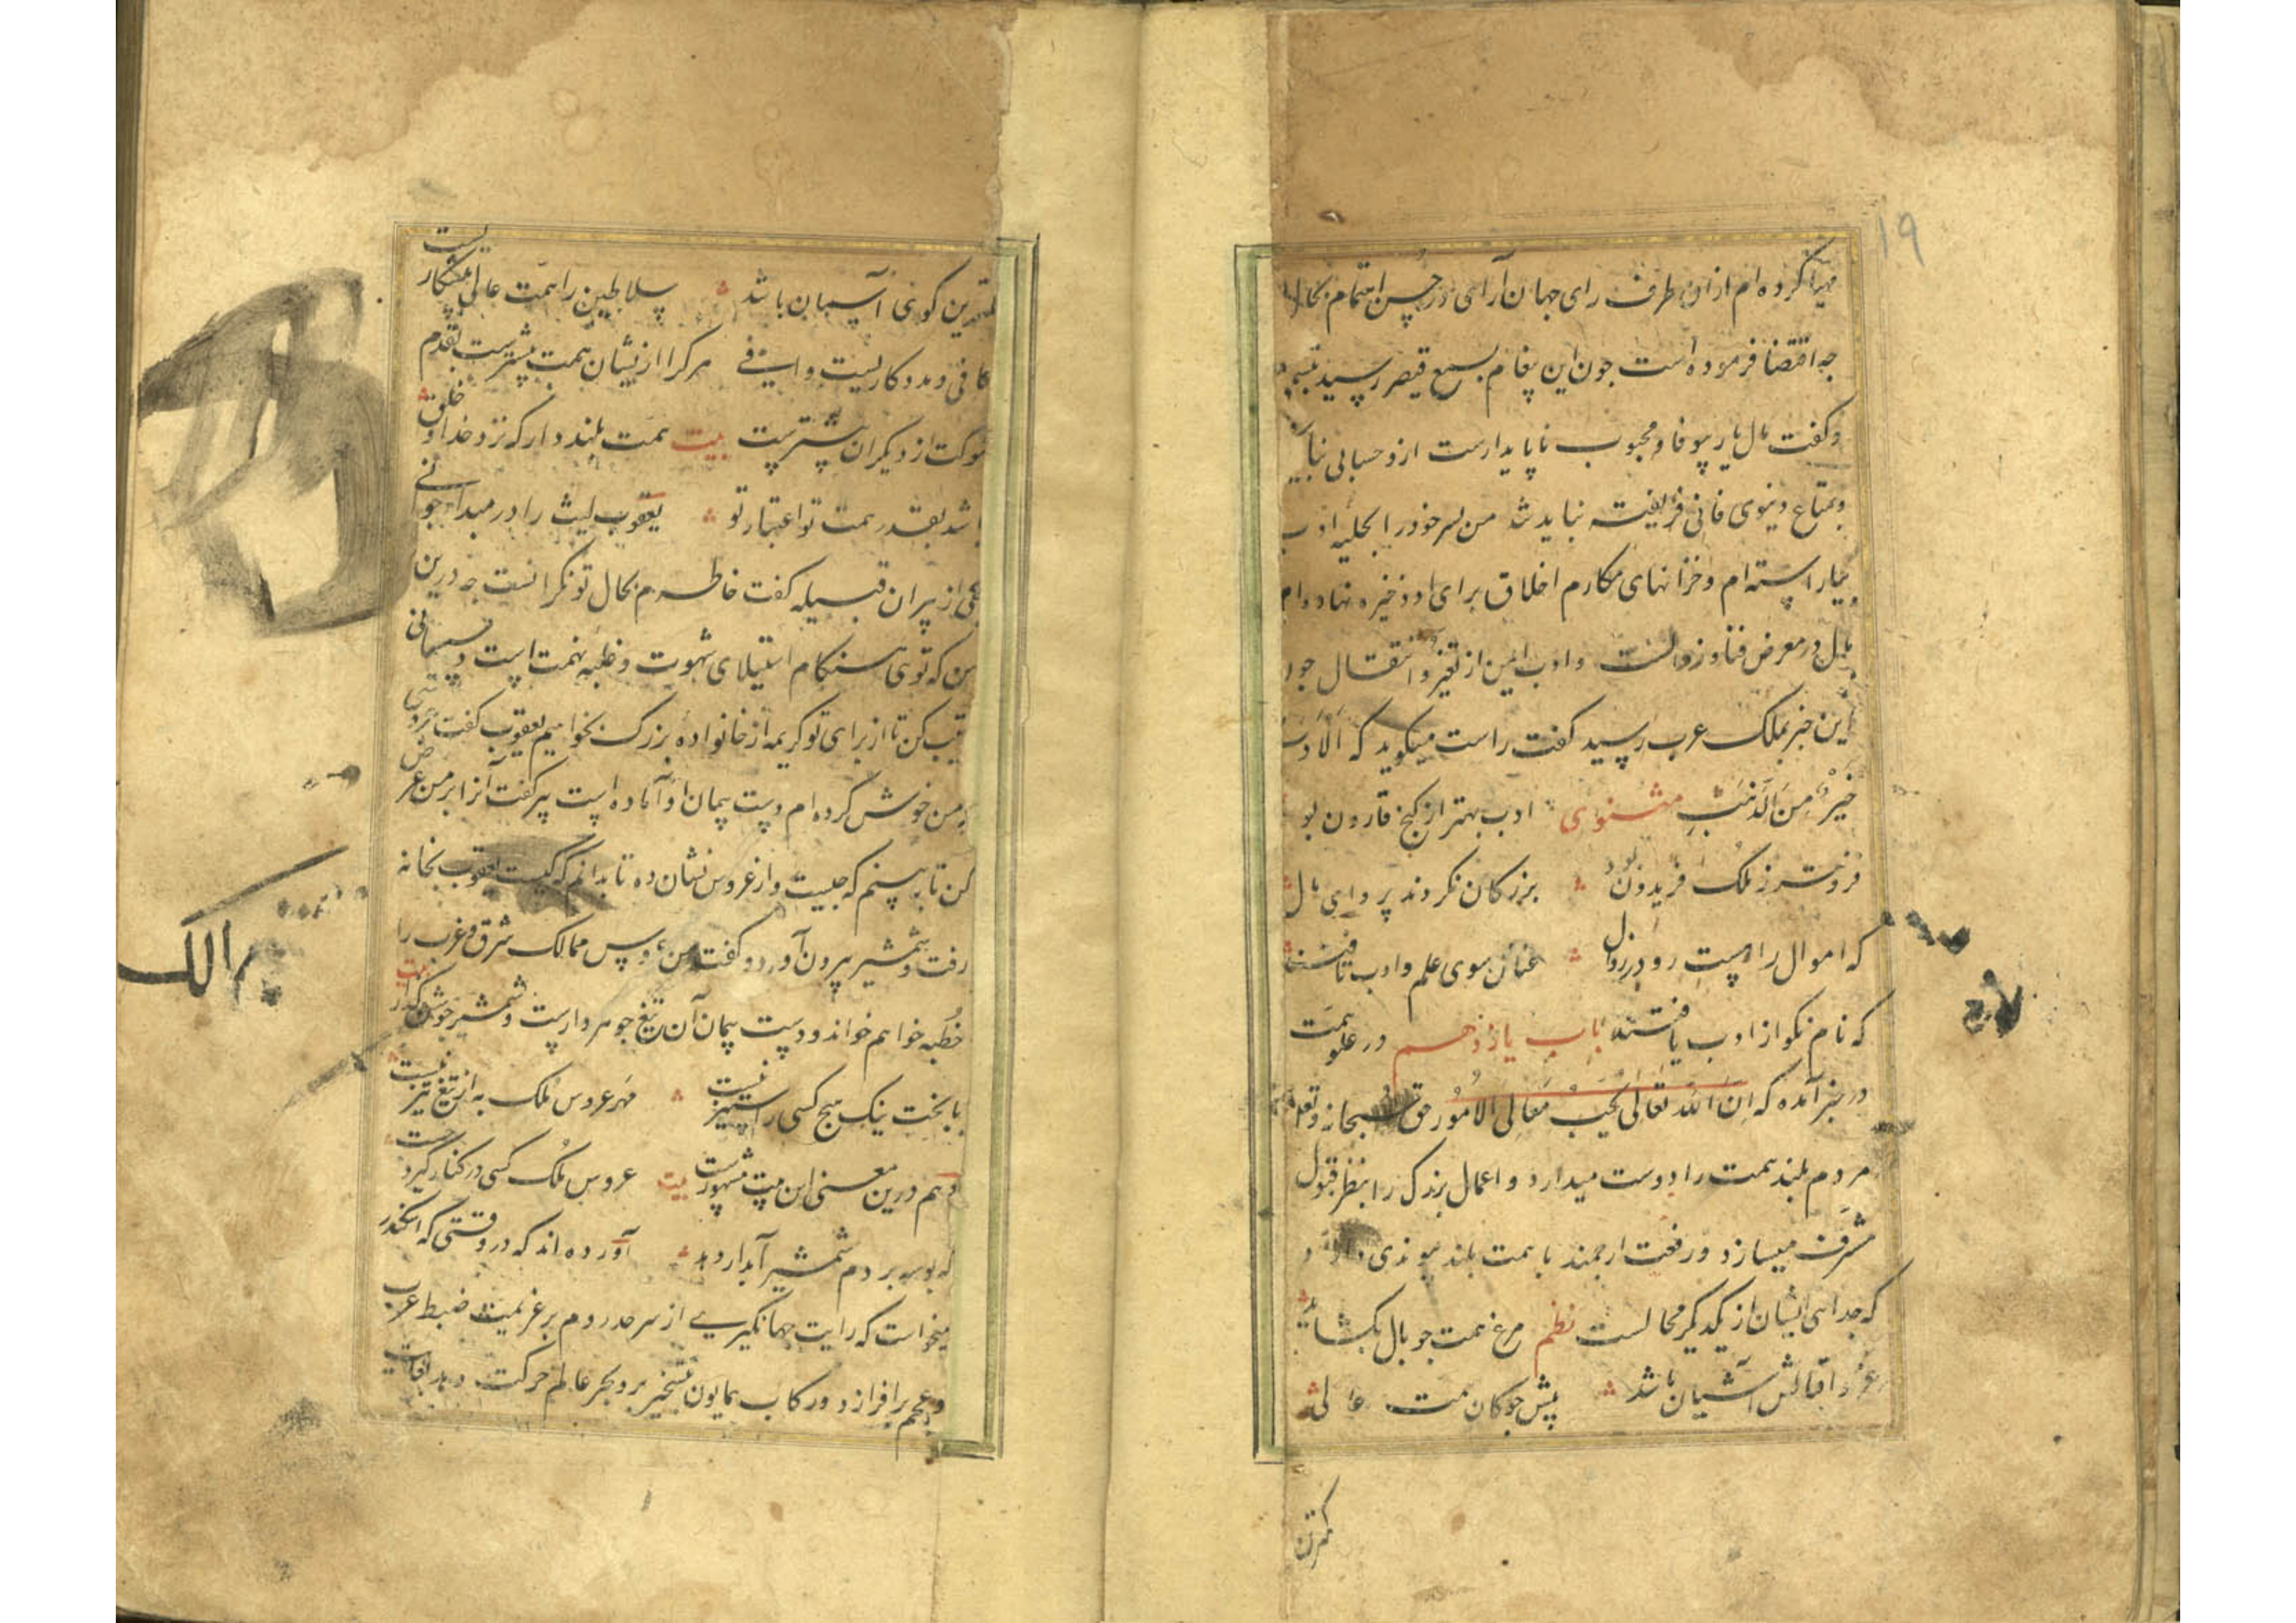 ۱۹
مهیا کرده ام از ان طرف رای جهان آرای در حسن اهتمام بحال او
جه اقتضا فرموده است جون این پیغام بسمع قیصر رسید تبسم
و کفت مال یار بیوفا و محبوب ناپایدارست ازو حسابی نباید
و بمتاع دنیوی فانی فریفته نباید شد من پسر خود را بحلیه ادب
بیاراسته ام و خزانهای مکارم اخلاق برای او ذخیره نهاده ام
مال در معرض فنا و زوالست و ادب ایمن از تغیر و انتقال جون
این خبر بملک عرب رسید کفت راست میکوید که اَلاَدَبُ
خَیرٌ مِنَ الذَهَبِ مثنوی ادب بهتر از کنج قارون بود
فزونتر ز ملک فریدون بود بزرکان نکردند پروای مال
که اموال را هست رو در زوال عنان سوی علم و ادب تافتند
که نام نکو از ادب یافتند باب یازدهم در علو همت
در خبر آمده که اِنَ اللّٰهَ تَعَالٰی یُحِبُ مَعَالِی الاُمُور حق سبحانه و تعالی
مردم بلند همت را دوست میدارد و اعمال بزرک را بنظر قبول
مشرف میسازد و رفعت ارجمند با همت بلند پیوندی دارد
که جدایی ایشان از یکدیکر محالست نظم مرغ همت جو بال بکشاید
اقبالش آشیان باشد پیش جوکان همت عالی
کمترین
کمترین کوئی آسمان باشد سلاطین را همت عالی پیشکاریست
کافی و مددکاریست وافی هر کرا ازیشان همت بیشترست تقدم
شوکت از دیکران بیشترست بیت همت بلند دار که نزد خدا و خلق
باشد بقدر همت تو اعتبار تو یعقوب لیث را در مبدأ جوانی
یکی از پیران قبیله کفت خاطرم بحال تو نکرانست جه درین
سن که توی هنکام استیلای شهوت و غلبه نهمت است دستپیمانی
ترتیب کن تا از برای تو کریمه از خانواده بزرک بخواهیم یعقوب کفت عروسی
که من خوش کرده ام دست پیمان او آماده است پیر کفت آنرا بر من عرض
کن تا ببینم که جیست و از عروس نشان ده تا بدانم که کیست یعقوب بخانه
رفت و شمشیر بیرون آورد و کفت من عروس ممالک شرق و غرب را
خطبه خواهم خواند و دست پیمان آن تیغ جوهردارست و شمشیر جوشن کذار بیت
با بخت نیک هیج کسی را ستیز نیست مهر عروس ملک به از تیغ تیز نیست
و هم درین معنی این بیت مشهورست بیت عروس ملک کسی در کنار کیرد جست
که بوسه بر دم شمشیر آبدار دهد آورده اند که در وقتی که اسکندر
میخواست که رایت جهانکیری از سرحد روم بر عزیمت ضبط عرب
و عجم برافرازد و رکاب همایون بتسخیر بر و بحر عالم حرکت دهد